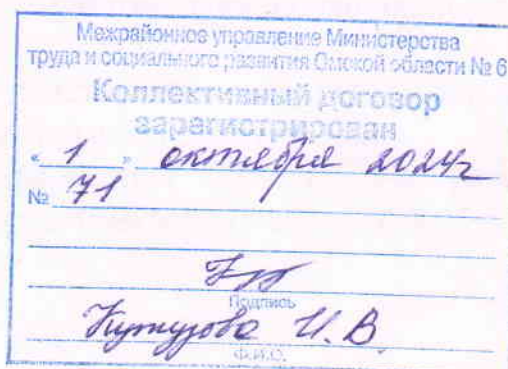 Межрайонное управление Министерства
труда и социального развития Омской области № 6
Коллективный договор
зарегистрирован
« 1 » октября 2024г
№ 71
Подпись
Кутузова И. В.
Ф.И.О.